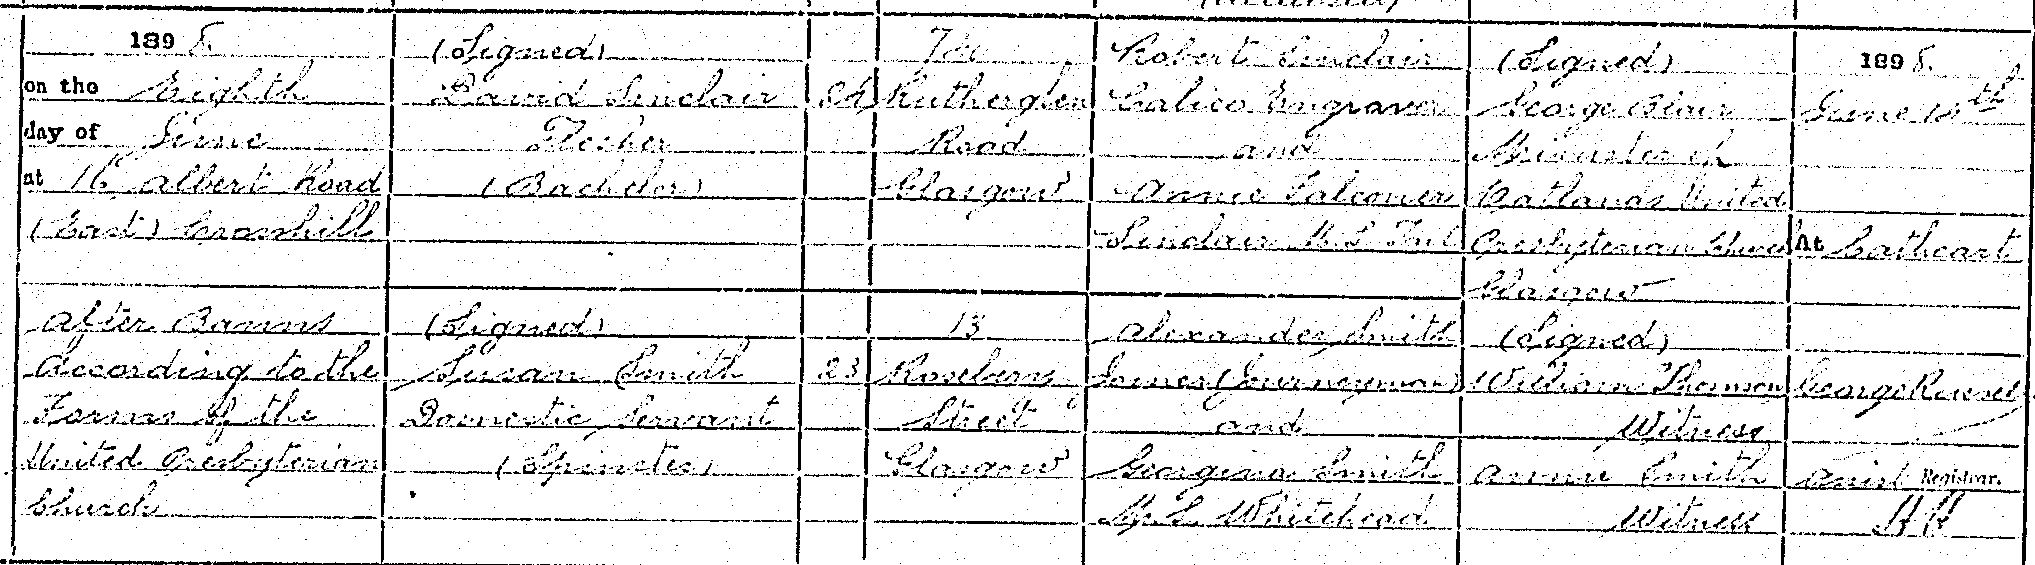 1898.
on the Eighth
day of June
at 16 Albert Road
(East) Crosshill
After Banns
According to the
Forms of the
United Presbyterian
Church
(Signed)
David Sinclair
Flesher
(Bachelor)
(Signed)
Susan Smith
Domestic Servant
(Spinster)
24
23
Rutherglen
Road
Glasgow
13
Rosebery
Street
Glasgow
Robert Sinclair
Calico Engraver
and
Annie Falconer
Sinclair M.S.
Alexander Smith
Joiner (Journeyman)
and
Georgina Smith
M.S. Whitehead
(Signed)
George Blair
Minister of
Oatlands United
Presbyterian Church
Glasgow
(Signed)
William Thomson
Witness
Annie Smith
Witness
1898.
June
At Cathcart
George Russell
Asist Registrar.